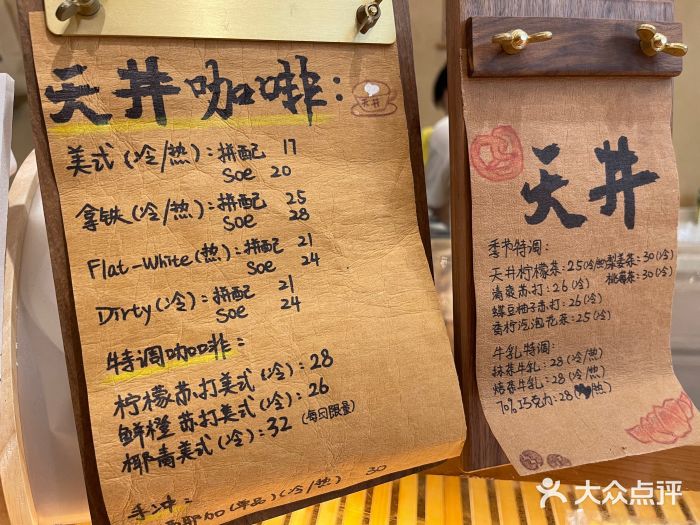 天井咖啡:
天井
美式(冷/热):拼配 17
SOE 20
拿铁(冷/热):拼配 25
SOE 28
Flat-White(热):拼配 21
SOE 24
Dirty(冷):拼配 21
SOE 24
特调咖啡:
柠檬苏打美式(冷):28
鲜橙苏打美式(冷):26
椰青美式(冷):32(每日限量)
手冲:
耶加(单品)(冷/热) 30
天井
季节特调:
天井柠檬茶:25(冷/热)
梨姜茶:30(冷)
桃莓茶:30(冷)
清爽苏打:26(冷)
蝶豆柚子苏打:26(冷)
香柠汽泡花茶:25(冷)
牛乳特调:
抹茶牛乳:28(冷/热)
焙茶牛乳:28(冷/热)
70%巧克力:28(热)
大众点评